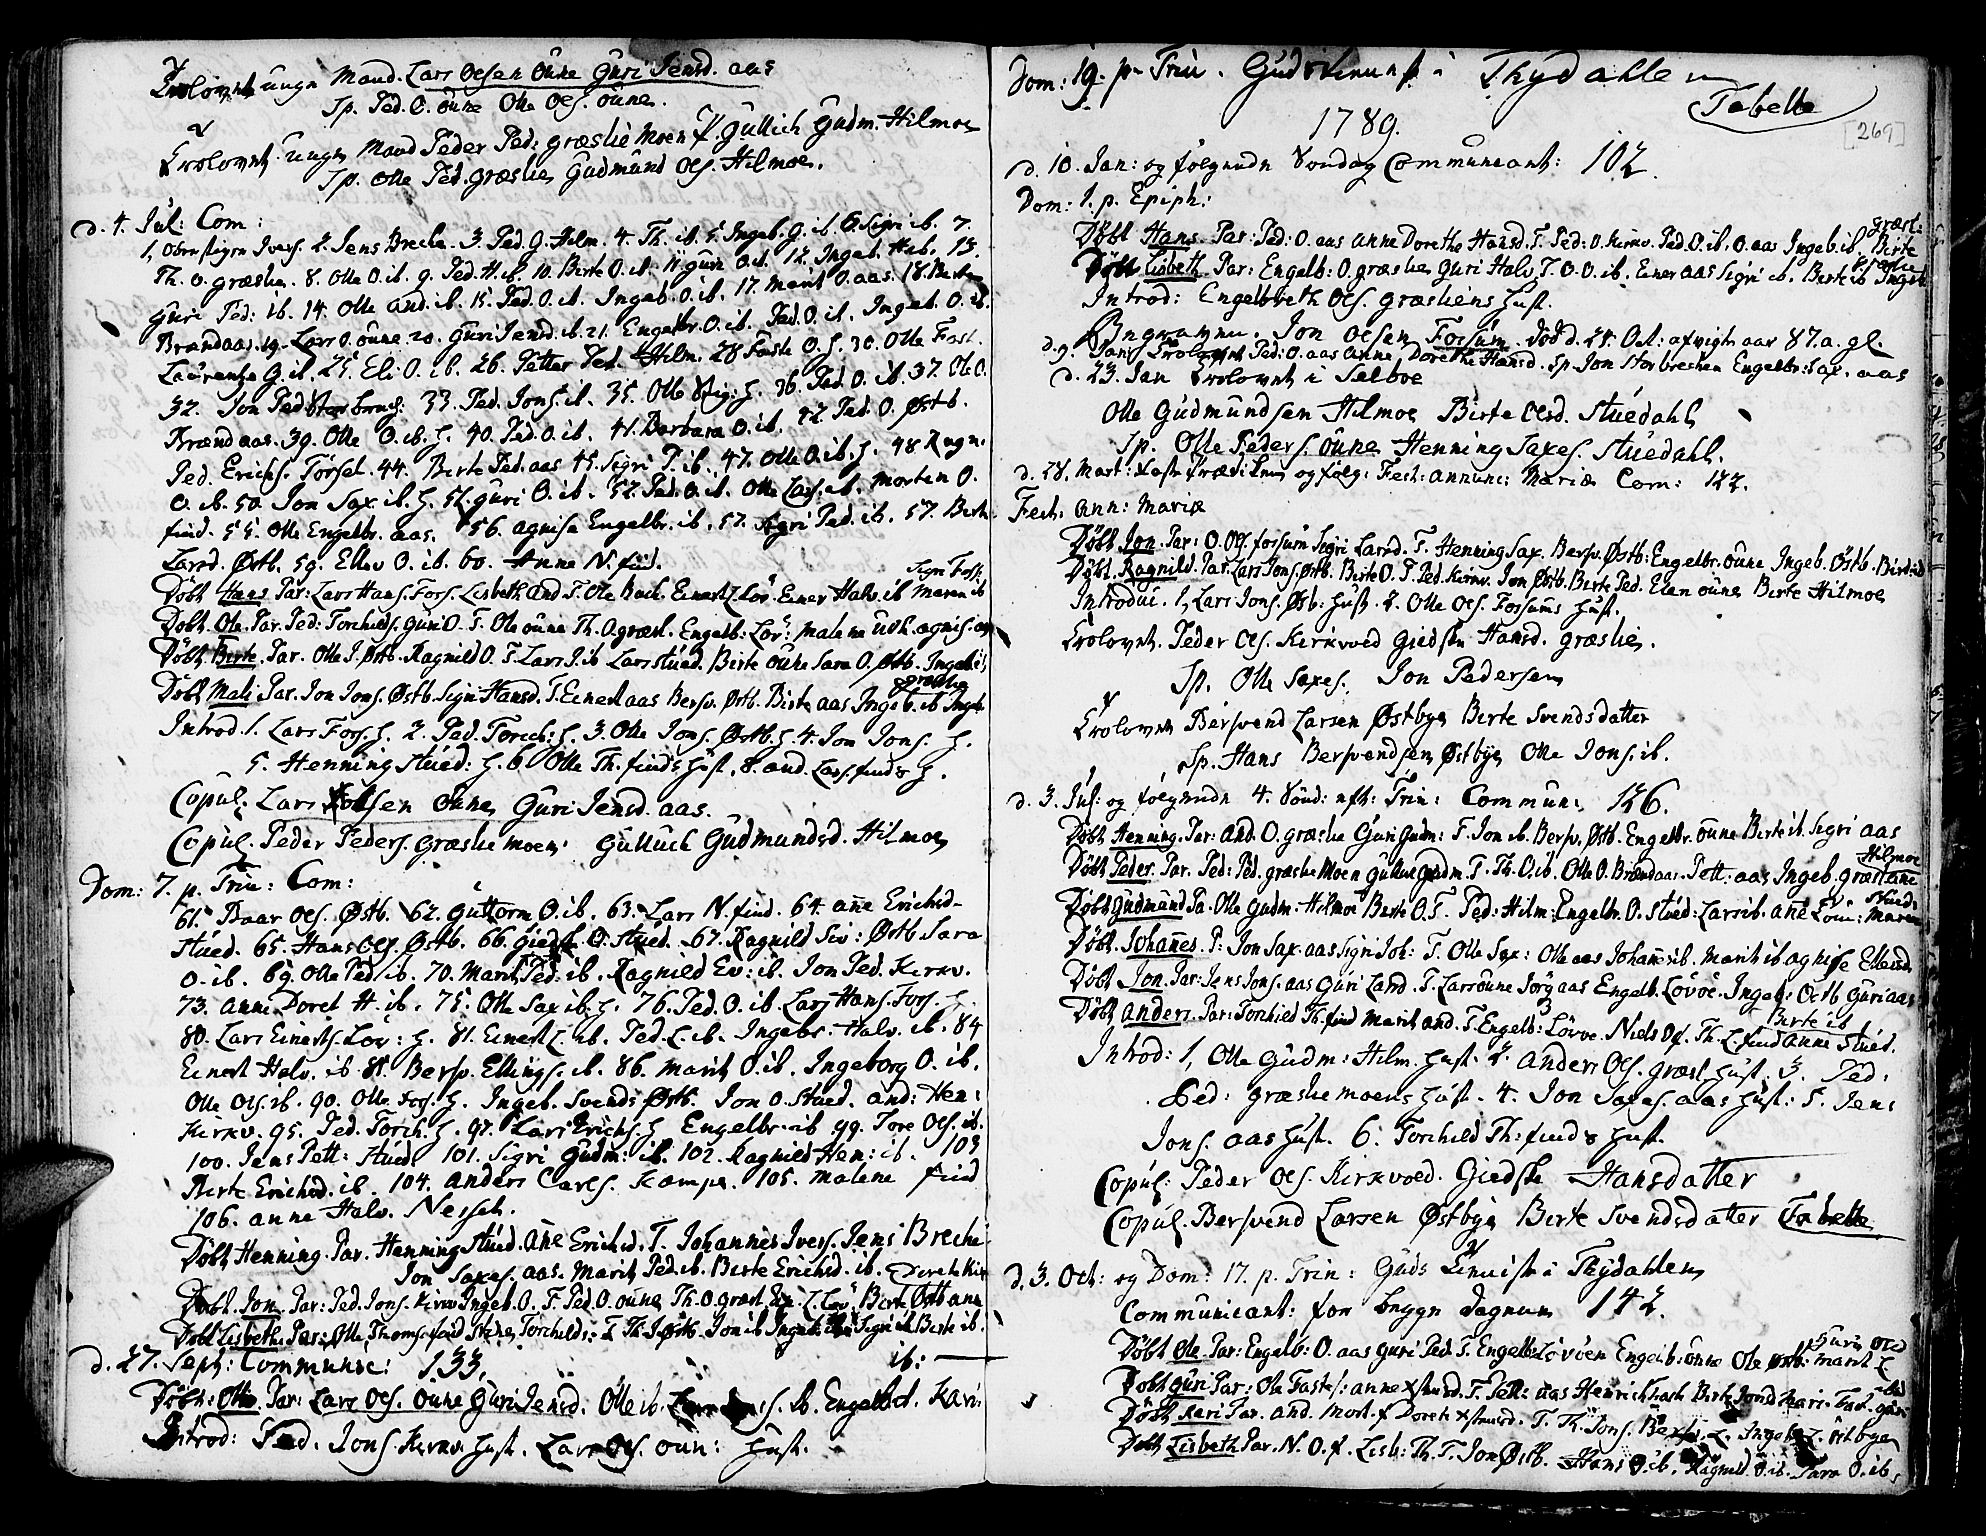 Trolovet unge Mand. Lars Oesen öune Guri Jensd. aas
Sp. Ped. O. öune Olle Oes. öune.
Trolovet unge Mand Peder Ped: græslie Moen P. Gullich Gudm. Hilmoe
Sp. Olle Ped. græslie, Gudmund Oes. Hilmoe.
d. 4. Jul: Com:
1, Oberstigen Ivers. 2. Jens Breche. 3. Ped. G. Hilm. 4. Th. ib. 5. Ingeb. G. ib. 6. Sigri ib. 7.
Th. O. græslie. 8. Olle O. ib. 9. Ped. H. ib. 10. Birte O. ib. 11. Guri O. ib. 12. Ingeb. H. ib. 13.
Guri Ped: ib. 14. Olle And. ib. 15. Ped. O. ib. Ingeb. O. ib. 17. Marit O. aas. 18. Birte
Brændaas. 19. Lars O. öune 20. Guri Jensd. ib. 21. Engelbr. O. ib. Ped. O. ib. Ingeb. O. ib.
Laurentze G. ib. 25. Eli O. ib. 26. Petter Ped. Hilm. 28 Faste O. H. 30. Olle Fast.
32. Jon Ped Storbrech. 33. Ped. Jons. ib. 35. Olle Stig: H. 36. Ped. O. ib. 37. Ol O.
Brændaas. 39. Olle O. ib. H. 40. Ped. O. ib. 41. Barbara O. ib. 42 Ped. O. Østb.
Ped. Erichs. Forset. 44. Birte Ped. aas 45. Sigri P. ib. 47. Olle O. ib. H. 48 Ragn.
O. ib. 50. Jon Sax. ib. H. 51. Guri O. ib. 52. Ped. O. ib. Olle Lars. ib. Morten O.
find. 55. Olle Engelbr. aas. 56. Agnise Engelbr. ib. 57. Sigri Ped. ib. 57. Birte
Larsd. Østb. 59. Ellev O. ib. 60. Anne N. find.
Døbt Hans Par: Lars Hans. Fors. Lisbeth And F. Ole Bach. Einert L. Löv. Einer Halv. ib Maren ib
Døbt Ole. Par. Ped: Torchilds. Guri O. F. Ole öune Th. O. græsl. Engelb: Löv: Malene agnis.
Døbt Birte. Par. Olle J. Østb. Ragnild O. F. Lars J. ib Lars Stued. Birte öune Sara O. Østb. Ingeb.
græslie
Døbt Mali Par. Jon Jons. Østb. Sigri Hansd. F. Einert aas Bersv. Østb. Birte aas Ingeb. ib Ingeb
Introd. 1. Lars Fors. H. 2. Ped. Torch: H. 3. Olle Jons. Østb. H. 4. Jon Jons. H.
5. Henning Stued: H. 6. Olle Th. finds Hust. 8. And. Lars. finds H.
Copul: Lars Olsen öune, Guri Jensd. aas.
Copul. Peder Peders. græslie moen. Gulluch Gudmundsd. Hilmoe
Dom: 7. p. Trin: Com:
61. Baar Oes. Østb. 62. Guttorm O. ib. 63. Lars N. find. 64. Ane Erichsd.
Stued. 65. Hans Oes. Østb. 66. Giedsk O. Stued. 67. Ragnild Siv: Østb Sara
O. ib. 69. Olle Ped. ib. 70. Marit Ped: ib. Ragnild Ev: ib. Jon Ped. Kirkv.
73. Anne Doret H. ib. 75. Olle Sax ib. H. 76. Ped. O. ib. Lars Hans. Fors. H.
80. Lars Einerts. Löv: H. 81. Einert L. ib. Ped. L. ib. Ingebr. Halv. ib. 84
Einert Halv. ib. 85. Bersv. Ellings. ib. 86. Marit O. ib. Ingeborg O. ib.
Olle Ols. ib. 90. Olle Fors. H. Ingeb. Svends Østb. Jon O. Stued. And: Hen:
Kirkv. 95. Ped. Torch. H. 97. Lars Erichs. H Engelbr. ib 99. Tore Oes. ib.
100. Jens Pett: Stued. 101. Sigri Gudm: ib. 102. Ragnild Hen: ib. 103
Birte Erichsd. ib. 104. Anders Carls. Kampe. 105. Malene find
106. Anne Halv. Nessch.
Døbt Henning. Par. Henning Stued. Ane Erichsd. F. Johannes Ivers. Jens Breche.
Jon Saxes. aas. Marit Ped. ib. Birte Erichsd. ib. Dorete Kir
Døbt Jon. Par: Ped. Jons. Kirkv Ingeb. O. F. Ped. O. öune Th. O græsl. L. Löv. Birte Østb ane
Døbt Lisbeth. Par: Olle Thoms. find Torchilds: F. Th. J Østb. Jon ib Sigri ib Birte ib.
d. 27. Sept: Communic: 133, ib:
Døbt: Olle. Par: Lars Oes. öune Guri Jensd: Olle ib. ib. Engelb. Kari.
Introd: Ped. Jons. Kirkv. Hust. Lars Oes. oun: Hust.
Dom: 19. p. Trin. Gudstienest i Thydahlen
Tabelle
[269]
1789.
d. 10. Jan: og følgende Søndag Communicant: 102.
Dom: 1. p. Epiph:
Døbt Hans Par: Ped: O. aas Anne Dorethe Hansd. F. Ped: O. Kirkv. Ped. O. ib. O. aas Ingeb. ib. Birte græsl:
Døbt Lisbeth. Par: Engelb: O. græslie Guri Halv. F. O. O. ib. Einer aas Sigri ib. Birte ib Ingeb
Introd: Engelbreth Oes. Græsliens Hust.
Jon Oesen Fossum. død d. 25. Oct: afvigte aar 87. a. gl.
d. 9. Jan: Trolovet Ped: O. aas Anne Dorethe Hansd. Sp. Jon Storbrechen Engelbr: Sax. aas
d. 23. Jan Trolovet i Selboe
Olle Gudmundsen Hilmoe Birte Oesd. Stuedahl
Sp. Olle Peders. öune Henning Saxes. Stuedahl.
d. 28. Mart: Faste Prædiken og følg: Fest: Annunc: Mariæ Com: 122.
Fest. Ann: Mariæ
Døbt Jon. Par: O. Oes. Fossum Sigri Larsd. F. Henning Sax. Bersv. Østb: Engelbr. öune Ingeb. Østb. Birte ib
Døbt. Ragnild. Par. Lars Jons. Østb. Birte O. F. Ped. Kirkv. Jon Østb. Birte Ped. Elen öune Birte Hilmoe
Introduc. 1, Lars Jons. Østb: Hust. 2. Olle Oes. Fossums Hust.
Trolovet. Peder Oes. Kirkvoed Giedske Hansd. græslie.
Sp. Olle Saxes. Jon Pedersen
Trolovet Bersvend Larsen Østbye Birte Svendsdatter
Sp. Hans Bersvendsen Østbye Olle Jons. ib.
d. 3. Jul: og følgende 4. Sönd: eft: Trin: Commun: 126.
Døbt Henning. Par: And. O. græslie Guri Gudm: F. Jon ib. Bersv. Østb. Engelbr. öune Birte ib. Sigri aas
Døbt Peder. Par. Ped: Ped. græslie Moen Gullue Gudm. F. Th. O. ib. Olle O. Brændaas. Pett: aas Ingeb. græsl ane Hilmoe
Døbt Gudmund Pa. Olle Gudm: Hilmoe Birte O. F. Ped: Hilm: Engelbr. O. Stued: Lars ib. Ane Löv: Maren Stued:
Døbt Johannes. P: Jon Sax. aas Sigri Joh: F. Olle Sax: Olle aas Johanes ib. Marit ib agnise Ellensd.
Døbt Jon. Par: Jens Jons. aas Guri Land. F. Lars öune Jörg aas Engelb. Lövöe. Ingeb: Ostb Guri aas
Døbt Anders. Par: Torchild Th. find Marit And. F. Engelb: Lövoe. Niels O f. Th. L. find Anne Stued. Birte ib
Introd: 1, Olle Gudm: Hilm. Hust. 2. Anders Oes. græsl. Hust. 3. Ped:
Ped: græslie moens Hust. 4. Jon Saxes. aas Hust: 5. Jens
Jons. aas Hust. 6. Torchild Th: finds Hust.
Copul: Peder Oes. Kirkvoed. Giedske Hansdatter
Copul. Bersvend Larsen Østbye Birte Svendsdatter Tabelle
d. 3. Oct: og Dom: 17. p. Trin: Guds Tieniste i Thydahlen
Communicant: for begge Dagene 142.
Døbt Ole. Par: Engelb: O. aas Guri Ped. F. Engelb: Lövöen Engelb: öune Ole Østb: Marit L Guri
Døbt Guri Par: Ole Fastes: Anne F. Pett: aas Henrich Birte Mari. Fast. Guri
Døbt Kari Par. And. Mort. f Dorete F. Th. Jons. Ingeb. Östbye
Døbt Lisbeth Par. N. O. f. Lisb: Th. F. Jon Østb. Hans O. ib. Ragnild O. ib. Sara O. ib.